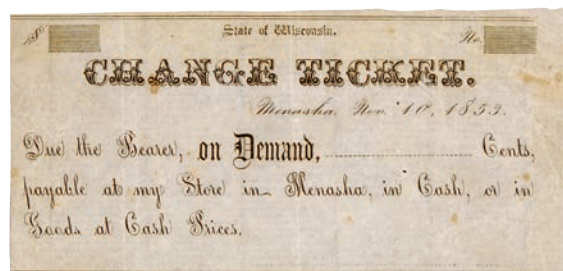 $ State of Wisconsin. No.
CHANGE TICKET.
Menasha, Nov. 10, 1853.
Due the Bearer, on Demand, Cents,
payable at my Store in Menasha, in Cash, or in
Goods at Cash Prices.